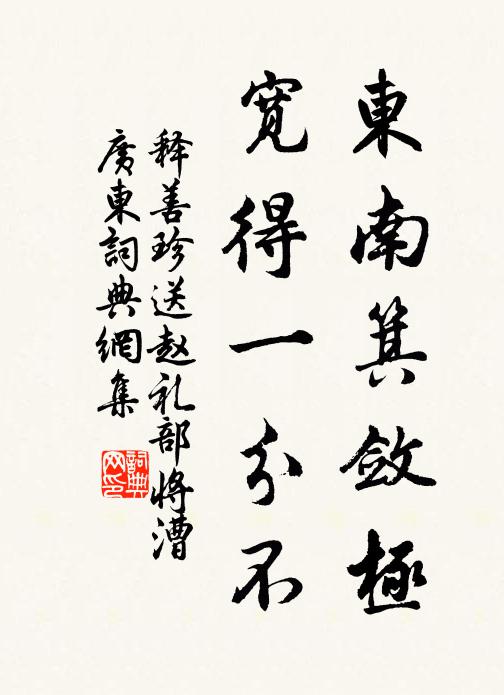 東南箕斂極
寬得一分不
释善珍送赵礼部将漕
廣東詞典網集
詞典
网印